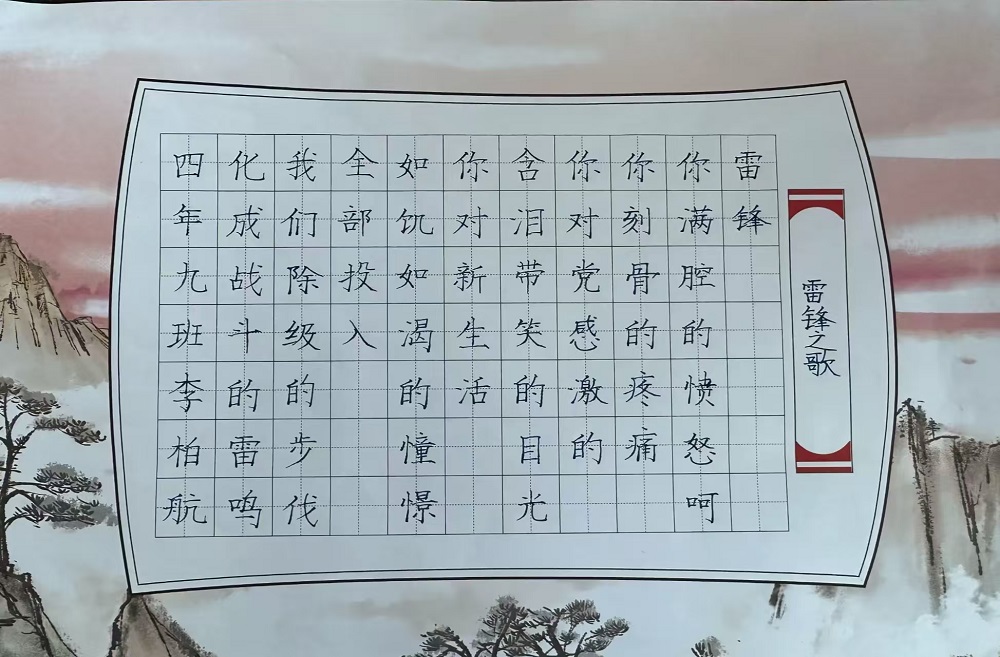 雷锋之歌
雷锋
你满腔的愤怒呵
你刻骨的疼痛
你对党感激的
含泪带笑的目光
你对新生活
如饥如渴的憧憬
全部投入
我们除级的步伐
化成战斗的雷鸣
四年九班李柏航